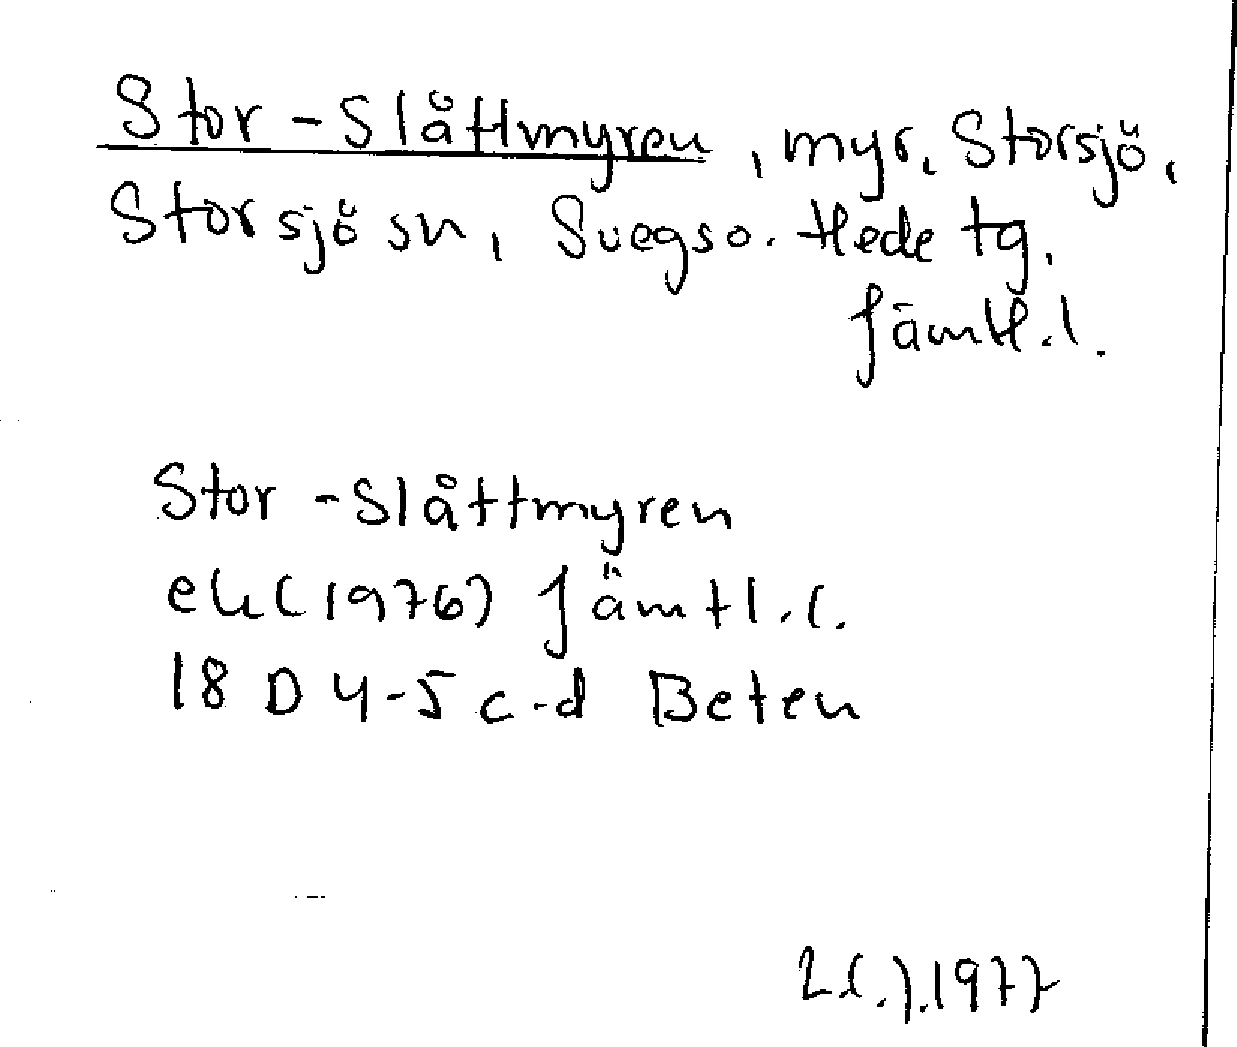 Stor-Slåttmyren, myr, Storsjö,
Storsjö sn, Svegs o. Hede tg.
Jämtl. l.
Stor-Slåttmyren
ek (1976) Jämtl. l.
18 D 4-5 c-d Beten
21.7.1977